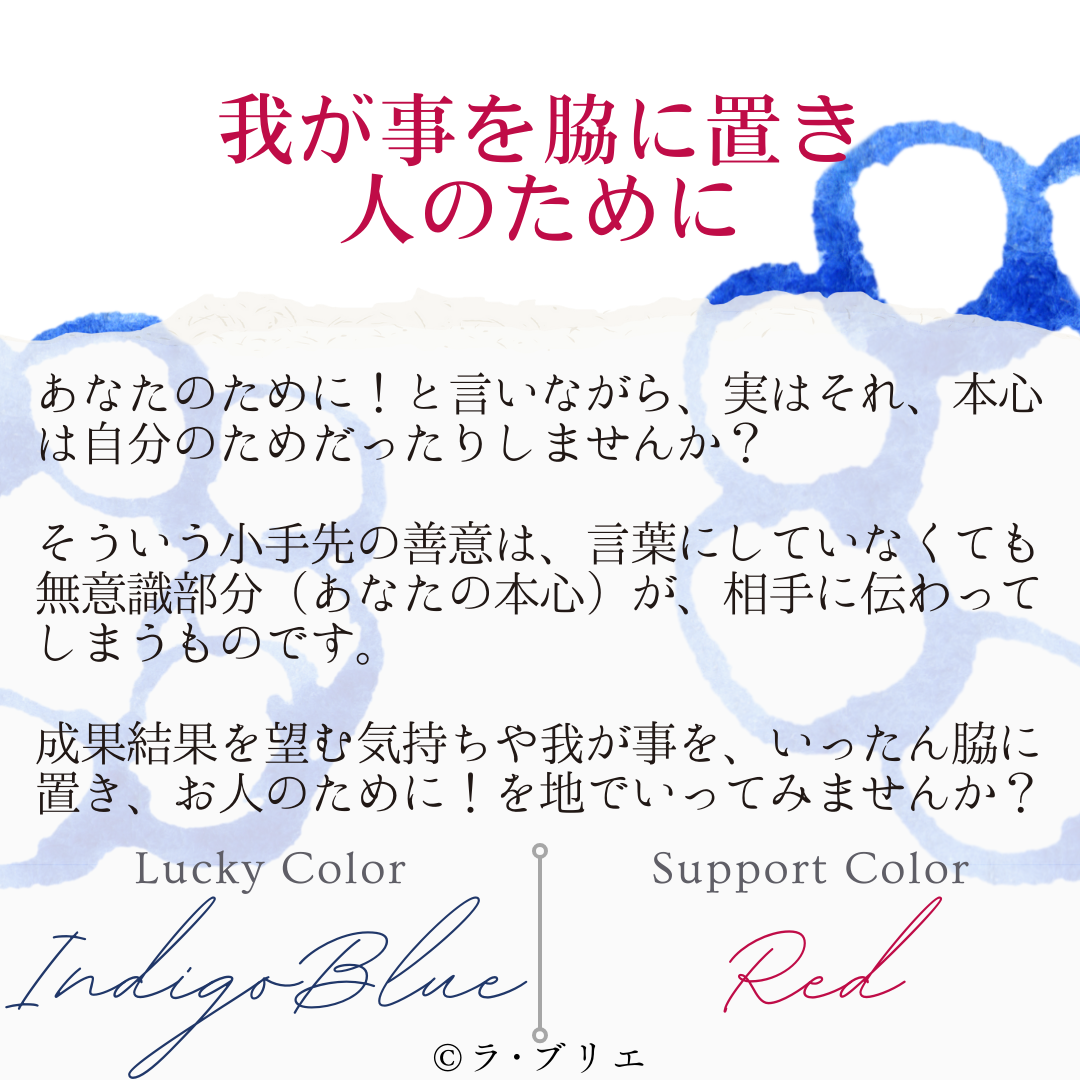 我が事を脇に置き
人のために
あなたのために！と言いながら、実はそれ、本心
は自分のためだったりしませんか？
そういう小手先の善意は、言葉にしていなくても
無意識部分（あなたの本心）が、相手に伝わって
しまうものです。
成果結果を望む気持ちや我が事を、いったん脇に
置き、お人のために！を地でいってみませんか？
Lucky Color
Support Color
IndigoBlue
Red
©ラ・ブリエ